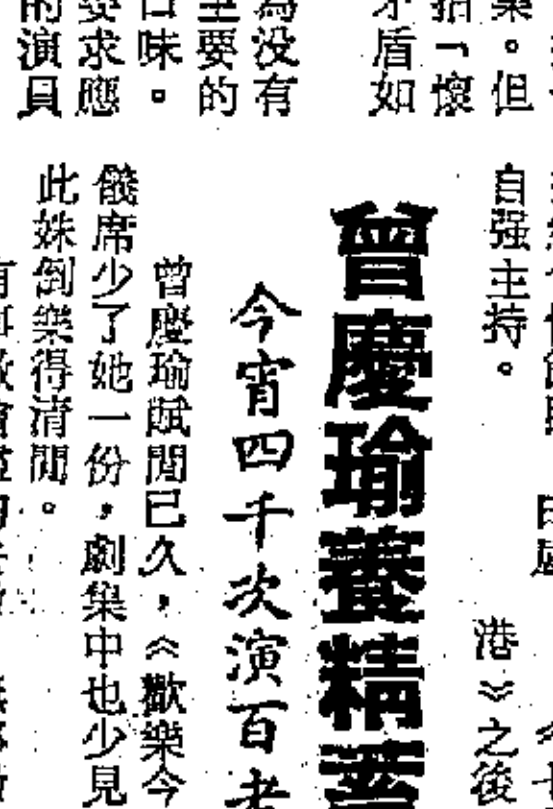 。但
「懷
矛盾如
為没有
主要的
口味。
要求應
的演員
自强主持。
港》之後
曾慶瑜養精蓄
今宵四千次演百老
曾慶瑜賦閒已久,《歡樂今
席少了她一份,劇集中也少見
此姝倒樂得清閒。